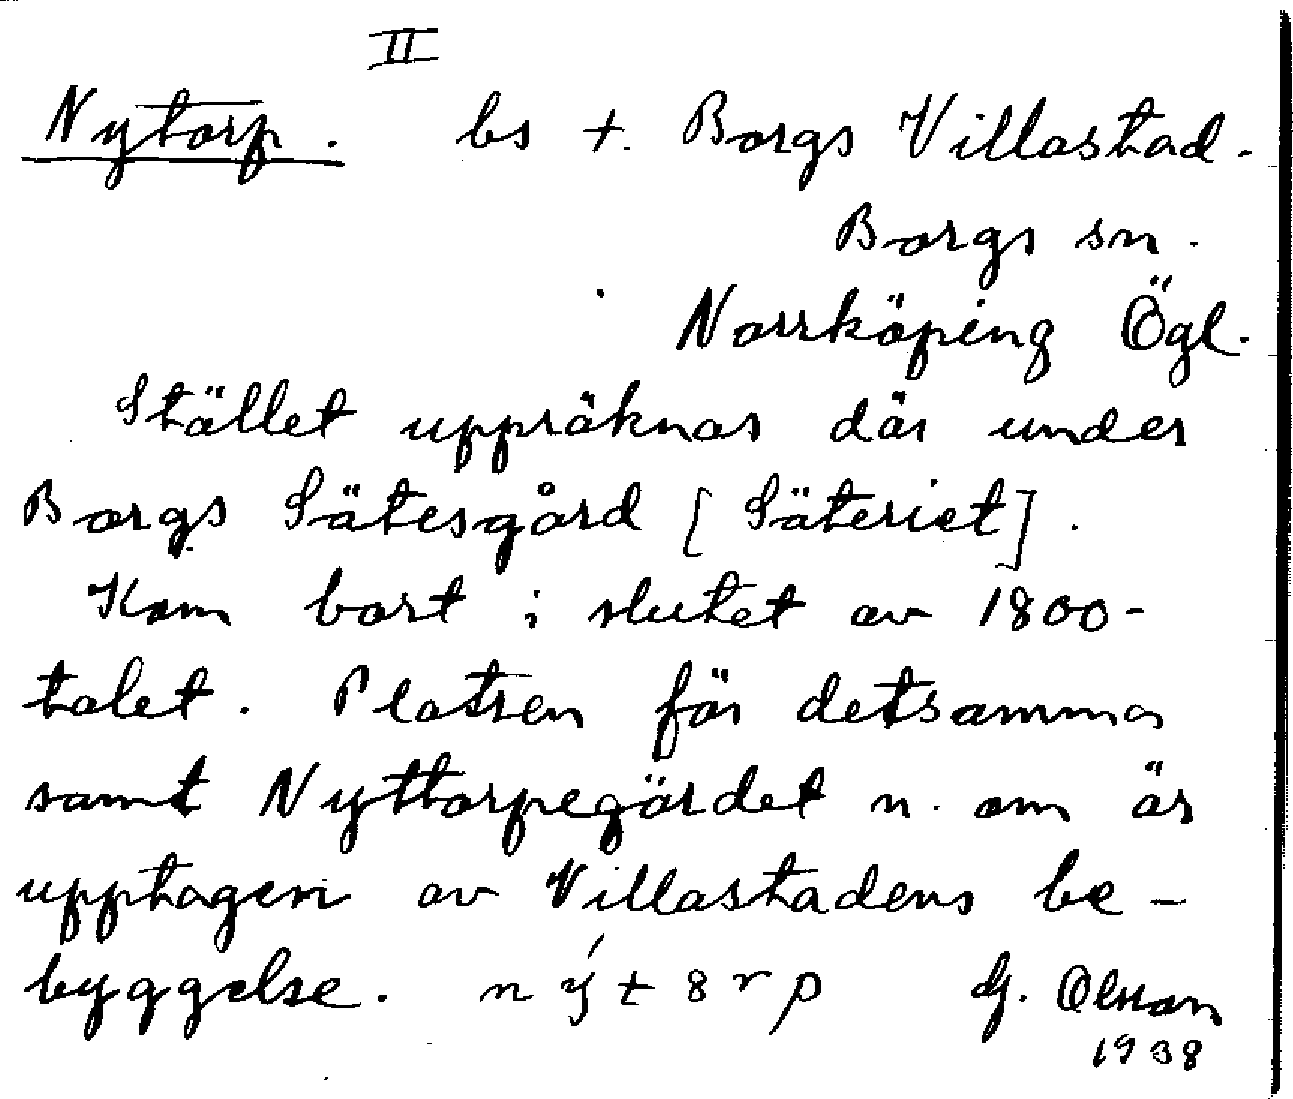 II
Nytorp. bs t. Borgs Villastad.
Borgs sn.
Norrköping Ögl.
Stället uppräknas där under
Borgs Sätesgård [Säteriet].
Kom bort i slutet av 1800-
talet. Platsen för detsamma
samt Nyttorpegärdet n. om är
upptagen av Villastadens be-
byggelse. nýt8rp G. Olsson
1938